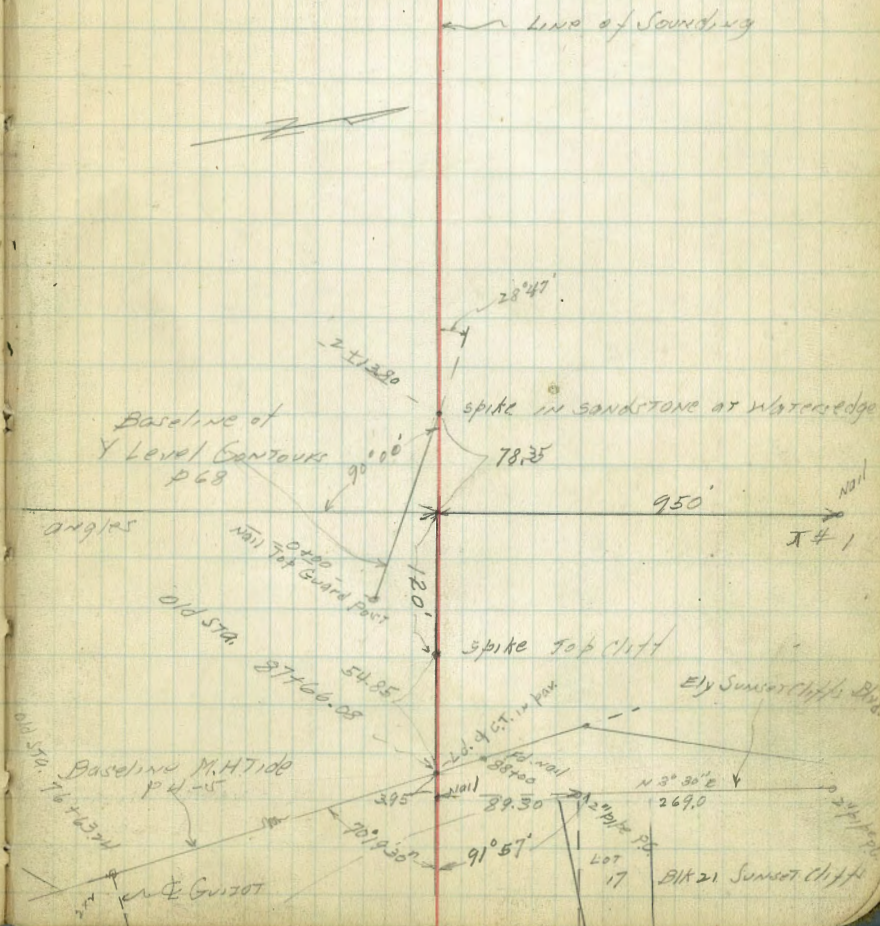 Line of Sounding
28°47'
2+13.80
spike in sandstone at Watersedge
Baseline of
Y Level Contours
p68
90°00'
78.35
950'
Nail
π # 1
angles
Nail 0+00
Top Guard Post
120'
Old Sta.
87+66.08
54.85
spike Top Cliff
Ely Sunset Cliffs Blvd.
Ld. & C.T. in pav.
Fd. Nail
88+00
Old Sta. 76+63.24
Baseline M.H Tide
P 4-5
3.95
Nail
89.30
2" pipe P.C.
N 3°30' E
269.0
2" pipe
70°19'30"
91°57'
Lot
17
Blk 21 Sunset Cliffs
℄ Guizot